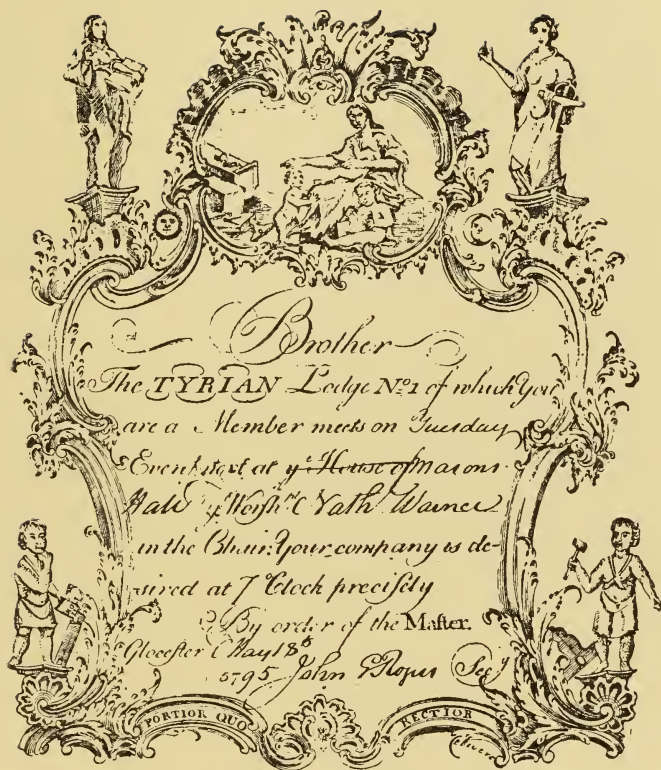 Brother
The TYRIAN Lodge No. 1 of which You
are a Member meets on Tuesday
Even.g next at ye House of Masons
Hall ye Worshl. Nath. Warner
in the Chair. Your company is de-
sired at 7 Clock precisely
By order of the Master.
Glocester May 18th
5795 John Rogers Secy
FORTIOR QUO
RECTIOR